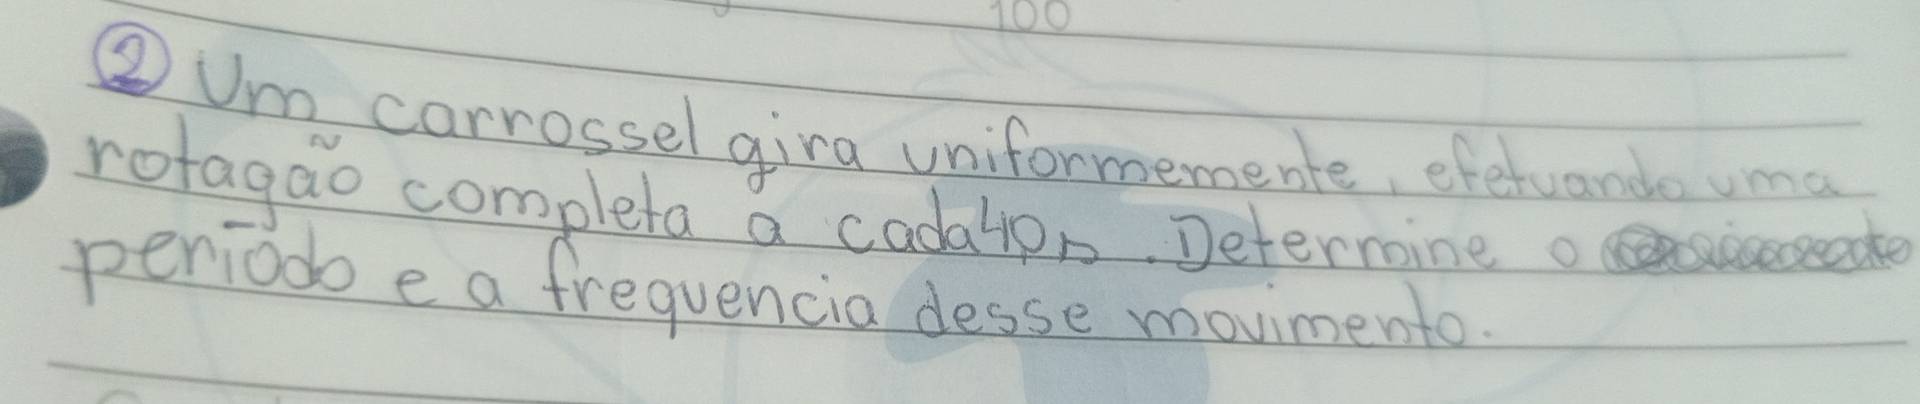 100
② Um carrossel gira uniformemente, efetuando uma
rotagão completa a cada 40s. Determine o
período e a frequencia desse movimento.